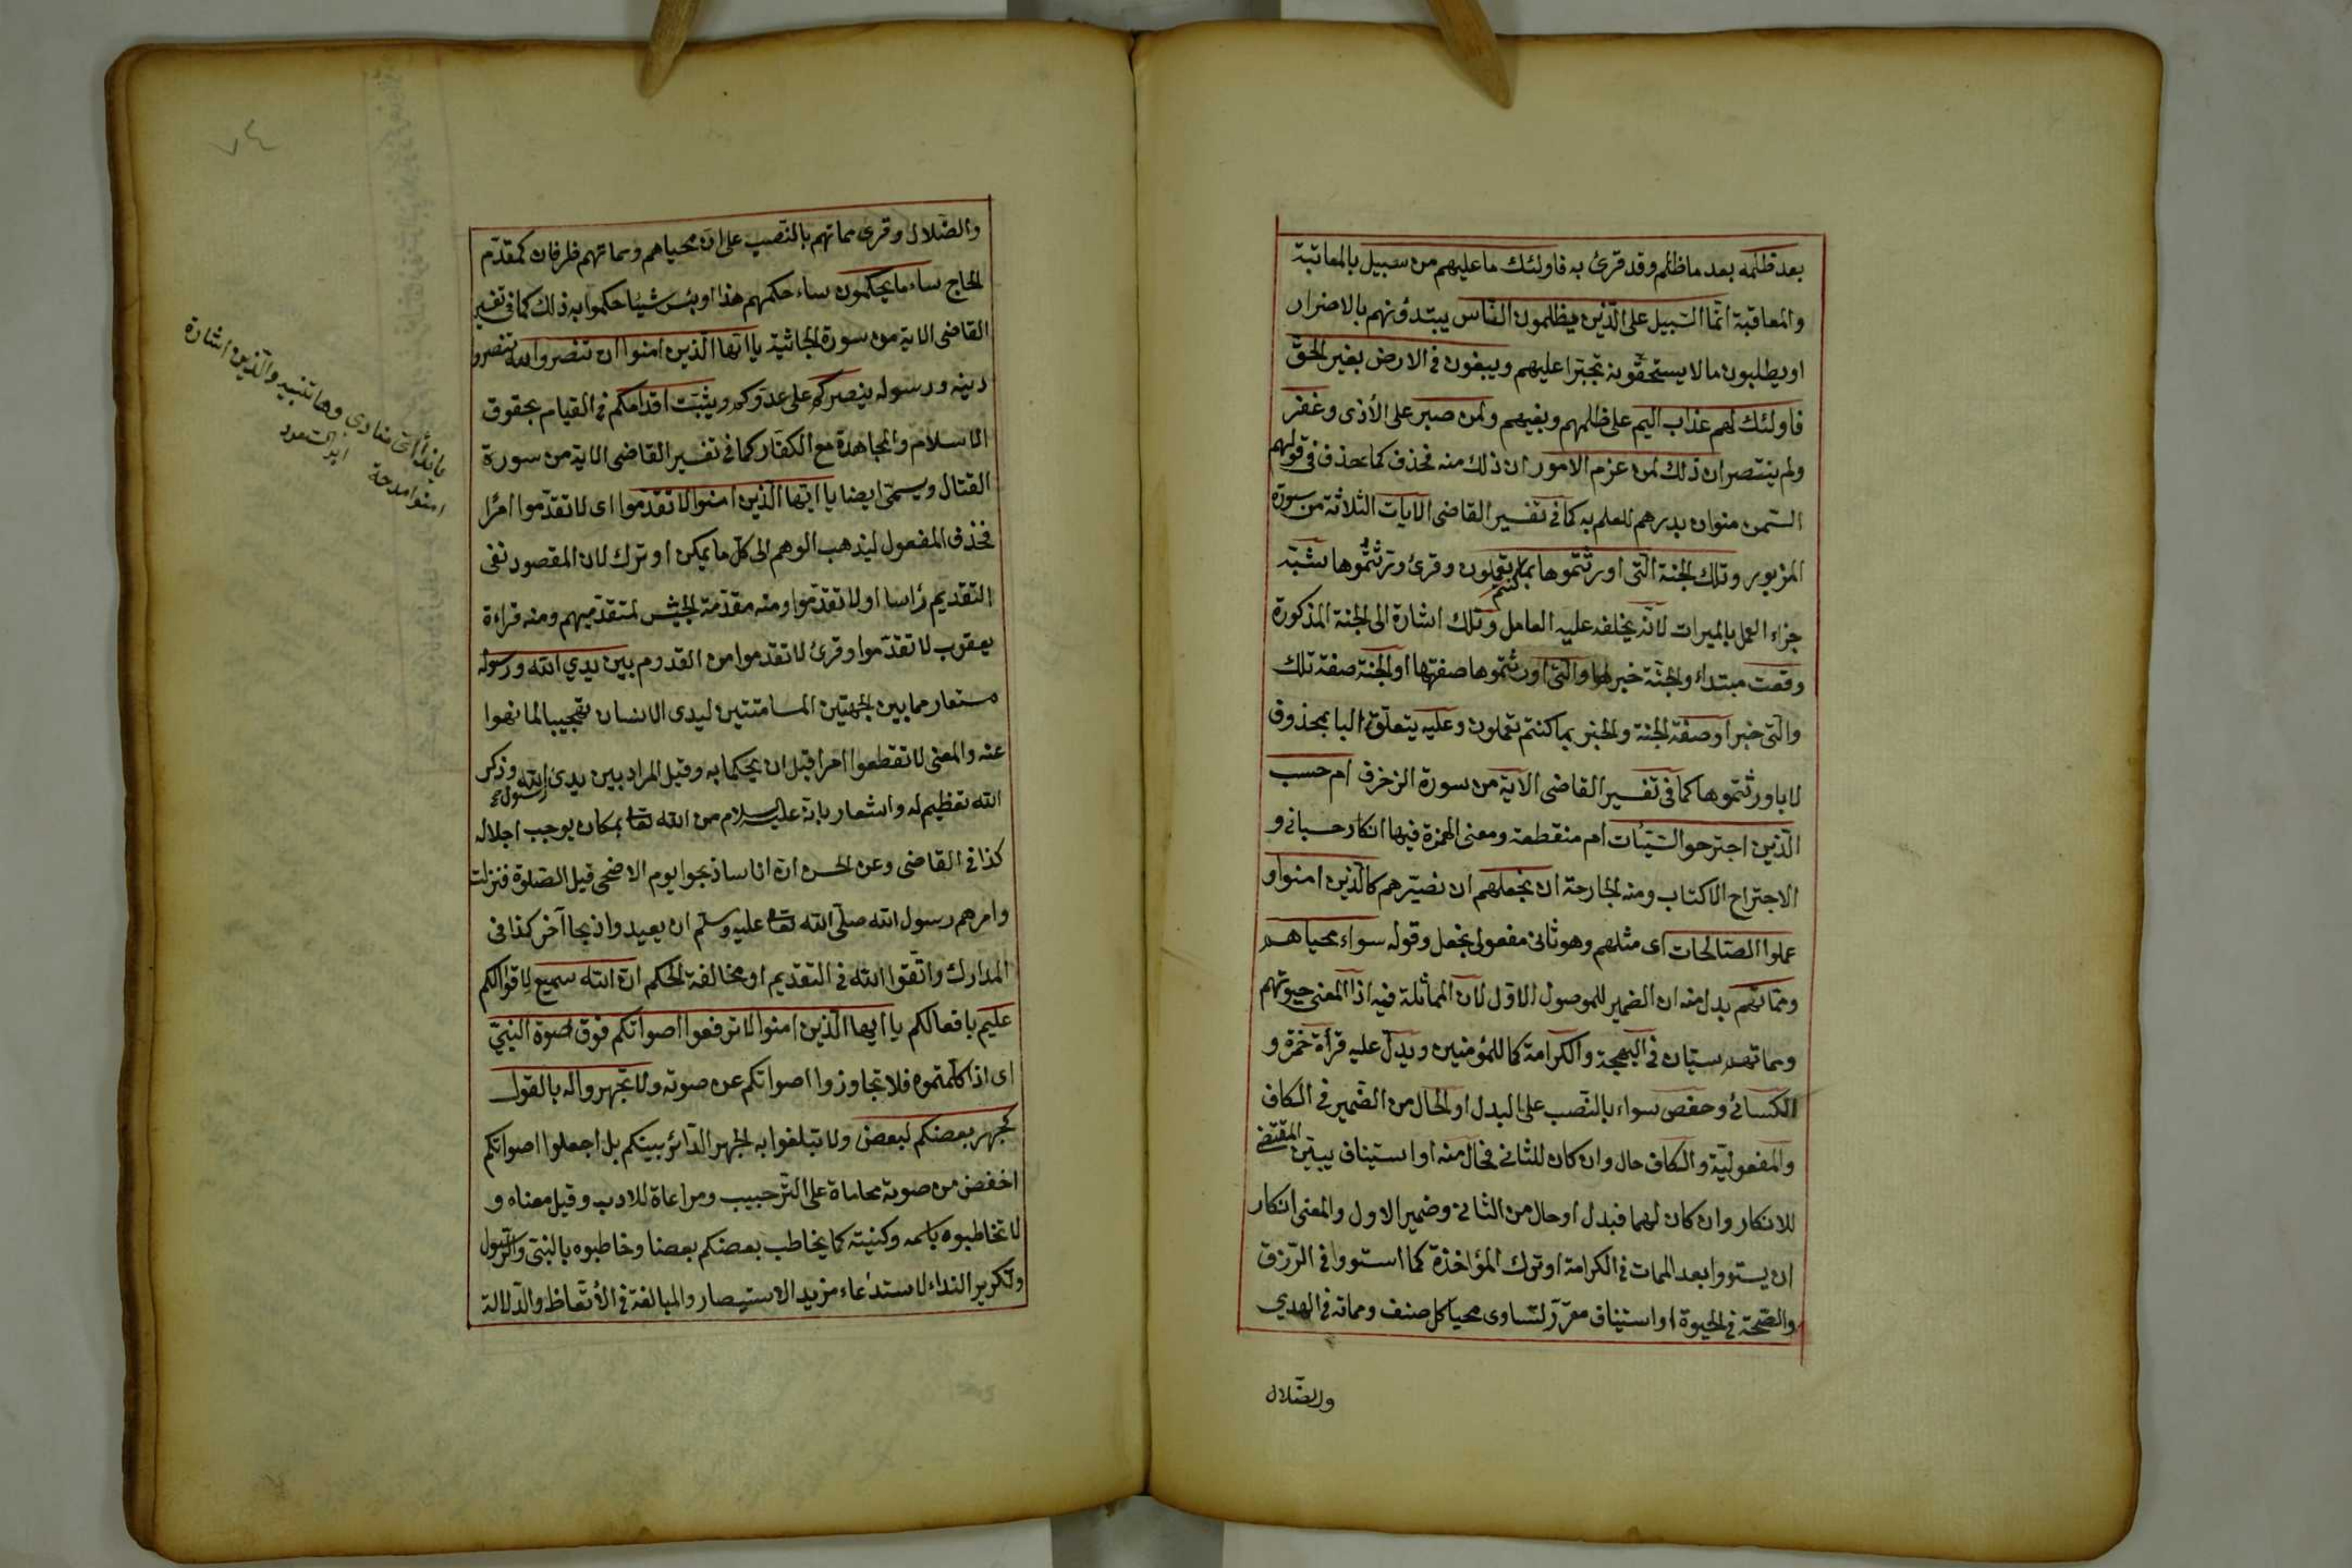 بعد ظلمه بعد ما ظلم وقد قرئ به فاولئك ما عليهم من سبيل بالمعاتبة
والمعاقبة انّما السّبيل على الّذين يظلمون النّاس يبتدؤنهم بالاضرار
او يطلبون ما لا يستحقّونه تجبّرا عليهم ويبغون فى الارض بغير الحقّ
فاولئك لهم عذاب اليم على ظلمهم وبغيهم ولمن صبر على الأذى وغفر
ولم ينتصر ان ذلك لمن عزم الامور ان ذلك منه فحذف كما يحذف فى قولهم
السّمن منوان بدرهم للعلم به كما فى تفسير القاضى الايات الثلاثة من سورة
المزبور وتلك الجنة الّتى اورثتموها بما كنتم تعملون وقرئ ورثتموها شبّه
جزاء العمل بالميراث لانّه يخلفه عليه العامل وتلك اشارة الى الجنة المذكورة
وقعت مبتداء والجنّة خبرها والّتى اورثتموها صفتها او الجنّة صفة تلك
والّتى خبر او صفة الجنة والخبر بما كنتم تعملون وعليه يتعلّق البا بمحذوف
لا باورثتموها كما فى تفسير القاضى الآية من سورة الزخرف ام حسب
الّذين اجترحو السّيّئات ام منقطعة ومعنى الهمزة فيها انكار حسبانى و
الاجتراح الاكتاب ومنه الجارحة ان نجعلهم ان نصيّرهم كالّذين امنوا و
عملوا الصّالحات اى مثلهم وهو ثانى مفعولى نجعل وقوله سواء محياهم
ومماتهم بدل منه ان الضمير للموصول الاوّل لان المماثلة فيه اذ المعنى حيوتهم
ومماتهم سيّان فى البهجة والكرامة كما للمؤمنين ويدلّ عليه قرأة حمزة و
الكسائى وحفص سواء بالنّصب على البدل او الحال من الضّمير فى الكاف
والمفعوليّة والكاف حال وان كان للثانى فحال منه او استيناف يبيّن المقتضى
للانكار وان كان لهما فبدل او حال من الثانى وضمير الاول والمعنى انكار
ان يستووا بعد الممات فى الكرامة او ترك المؤاخذة كما استووا فى الرّزق
والصّحّة فى الحيوة او استيناف مقرّر لتساوى محيا كل صنف ومماته فى الهدى
والضّلال
٧٤
والضّلال وقرى مماتهم بالنّصب على انّ محياهم ومماتهم ظرفان كمقدّم
الحاج ساء ما يحكمون ساء حكمهم هذا او بئس شيئا حكموا به ذلك كما فى تفسير
القاضى الاية من سورة الجاثية يا ايّها الّذين امنوا ان تنصروا الله تنصروا
دينه ورسوله ينصركم على عدوّكم ويثبّت اقدامكم فى القيام بحقوق
الاسلام والمجاهدة مع الكفّار كما فى تفسير القاضى الاية من سورة
القتال ويسمّى ايضا يا ايّها الّذين امنوا لا تقدّموا اى لا تقدّموا امرًا
فحذف المفعول ليذهب الوهم الى كلّ ما يمكن او ترك لان المقصود نفى
التقديم رأسا او لا تقدّموا ومنه مقدّمة الجيش لمتقدّميهم ومنه قراءة
يعقوب لا تقدّموا وقرئ لا تقدموا من القدوم بين يدي الله ورسوله
مستعار مما بين الجهتين المسامتتين ليدى الانسان تهجيبا لما نهوا
عنه والمعنى لا تقطعوا امرا قبل ان يحكما به وقيل المراد بين يدى رسول الله وذكر
الله تعظيم له واشعار بانه عليه السلام من الله تعالى بمكان يوجب اجلاله
كذا فى القاضى وعن الحسن انّ اناسا ذبحوا يوم الاضحى قبل الصّلوة فنزلت
وامرهم رسول الله صلّى الله تعالى عليه وسلّم ان يعيدوا ذبحا آخر كذا فى
المدارك واتّقوا الله فى التقديم او مخالفة الحكم ان الله سميع لاقوالكم
عليم بافعالكم يا ايها الّذين امنوا لا ترفعوا اصواتكم فوق صوة النبىّ
اى اذا كلّمتموه فلا تجاوزوا اصواتكم عن صوته ولا تجهروا له بالقول
كجهر بعضكم لبعض ولا تبلغوا به الجهر الدّائر بينكم بل اجعلوا اصواتكم
اخفض من صوته محاماة على التّرحيب ومراعاة للادب وقيل معناه و
لا تخاطبوه باسمه وكنيته كما يخاطب بعضكم بعضا وخاطبوه بالنبىّ والرّسول
وتكرير النداء لاستدعاء مزيد الاستبصار والمبالغة فى الأتّعاظ والدّلالة
يا نداء اىّ منادى وها تنبيه والّذين اشارة
امنوا مدحة ابو السّعود